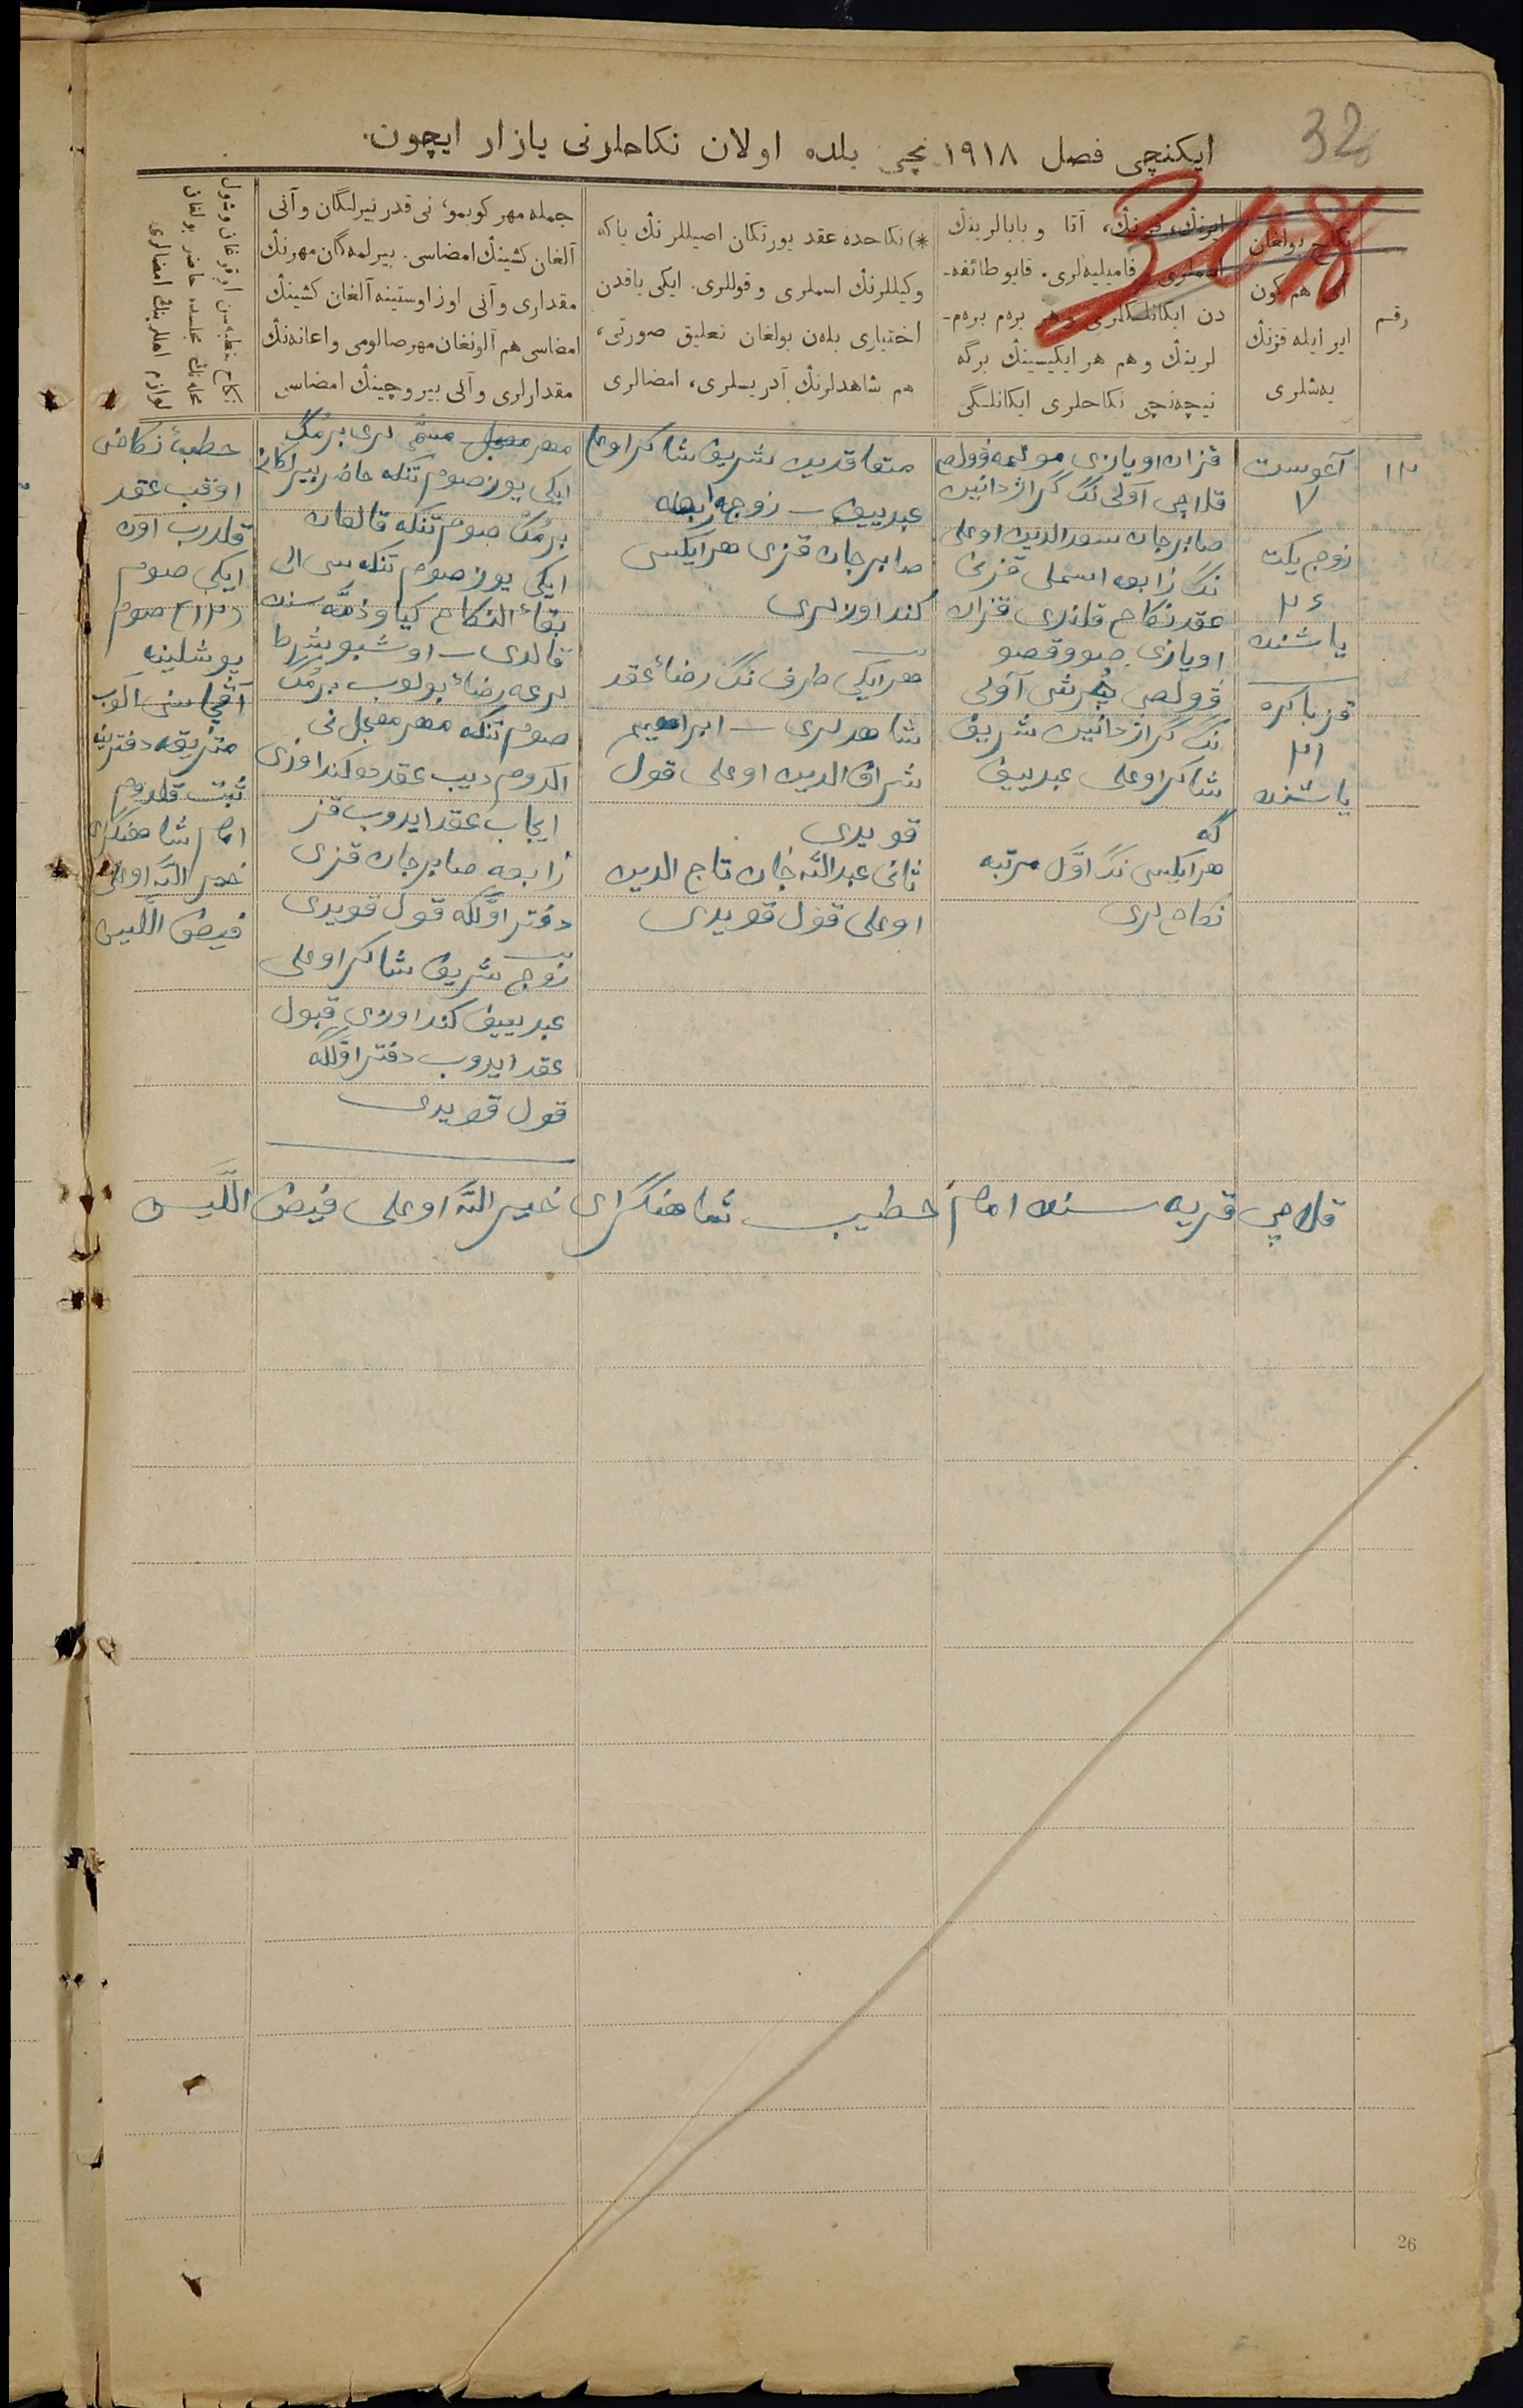 32
ایکنچی فصل ۱۹۱۸ نچی یلده اولان نکاحلرنی یازار ایچون.
308
رقم
نکاح بولغان
آی هم کون
ایر ایله قزنڭ
یەشلری
ایرنڭ، قزنڭ، آتا و بابالرینڭ
اسملری، فامیلیەلری. قایو طائفه‌-
دن ایکانلکلری و هر برەم برەم-
لرینڭ و هم هر ایکیسینڭ برگه
نیچەنچی نکاحلری ایکانلگی
*) نکاحده عقد یورتکان اصیللرنڭ یاکه
وکیللرنڭ اسملری و قوللری. ایکی یاقدن
اختیاری بلەن بولغان تعلیق صورتی،
هم شاهدلرنڭ آدریسلری، امضالری
جمله مهر کوبمو، نی قدر بیرلگان و آنی
آلغان کشینڭ امضاسی. بیرلمەگان مهرنڭ
مقداری و آنی اوز اوستینه آلغان کشینڭ
امضاسی هم آلونغان مهر صالومی و اعانه‌نڭ
مقدارلری و آلی بیروچینڭ امضاسی
نکاح خطبەسن اوقوغان وشول
مجلسده حاضر بولغان
امضالری
۱۳
آغوست
۷
زوج یکت
۲۶
یاشنده
قز باکره
۲۱
یاشنده
قزان اویازی
قلاچی آولی ننگ گراژدانین
صابرجان سعدالدین اوغلی
ننگ رابعه اسملی قزینی
عقد نکاح قلندی قزان
اویازی
آولی
ننگ گراژدانین شریف
شاکر اوغلی عبدییف
گه
هر ایکیسی ننگ اوّل مرتبه
نکاح لری
متعاقدین شریف شاکر اوغلی
عبدییف – زوجه رابعه
صابرجان قزی هر ایکیسی
کند اوزلری
هر ایکی طرف ننگ رضائ عقد
شاهدلری – ابراهیم
شراف الدین اوغلی قول
قویدی
ثانی عبدالله جان تاج الدین
اوغلی قول قویدی
مهر معجل مسمّی لری برمڭ
ایکی یوز صوم تنکه حاضر بیرلکانی
برمڭ صوم تنکه قالغان
ایکی یوز صوم تنکه سی الی
بقاء النکاح کیاو ذمّه سنده
قالدی – اوشبو شرط
لرغه رضاء بولوب برمڭ
صوم تنکه مهر معجل نی
الدوم دیب عقدده کند اوزی
ایجاب عقد ایدوب قز
رابعه صابرجان قزی
دفتر اوّلگه قول قویدی
زوج شریف شاکر اوغلی
عبدییف کند اوزی قبول
عقد ایدوب دفتر اوّلگه
قول قویدی
خطبهٔ نکاحنی
اوقب عقد
قلدرب اون
ایکی صوم
(۱۲) صوم
آقچاسنی الوب
متریقه دفترینه
ثبت قلدوم
امام شاهنگرای
خیرالله اوغلی
فیض اللّین
قلاچی قریه سنده امام خطیب شاهنگرای خیرالله اوغلی فیض اللّین
26